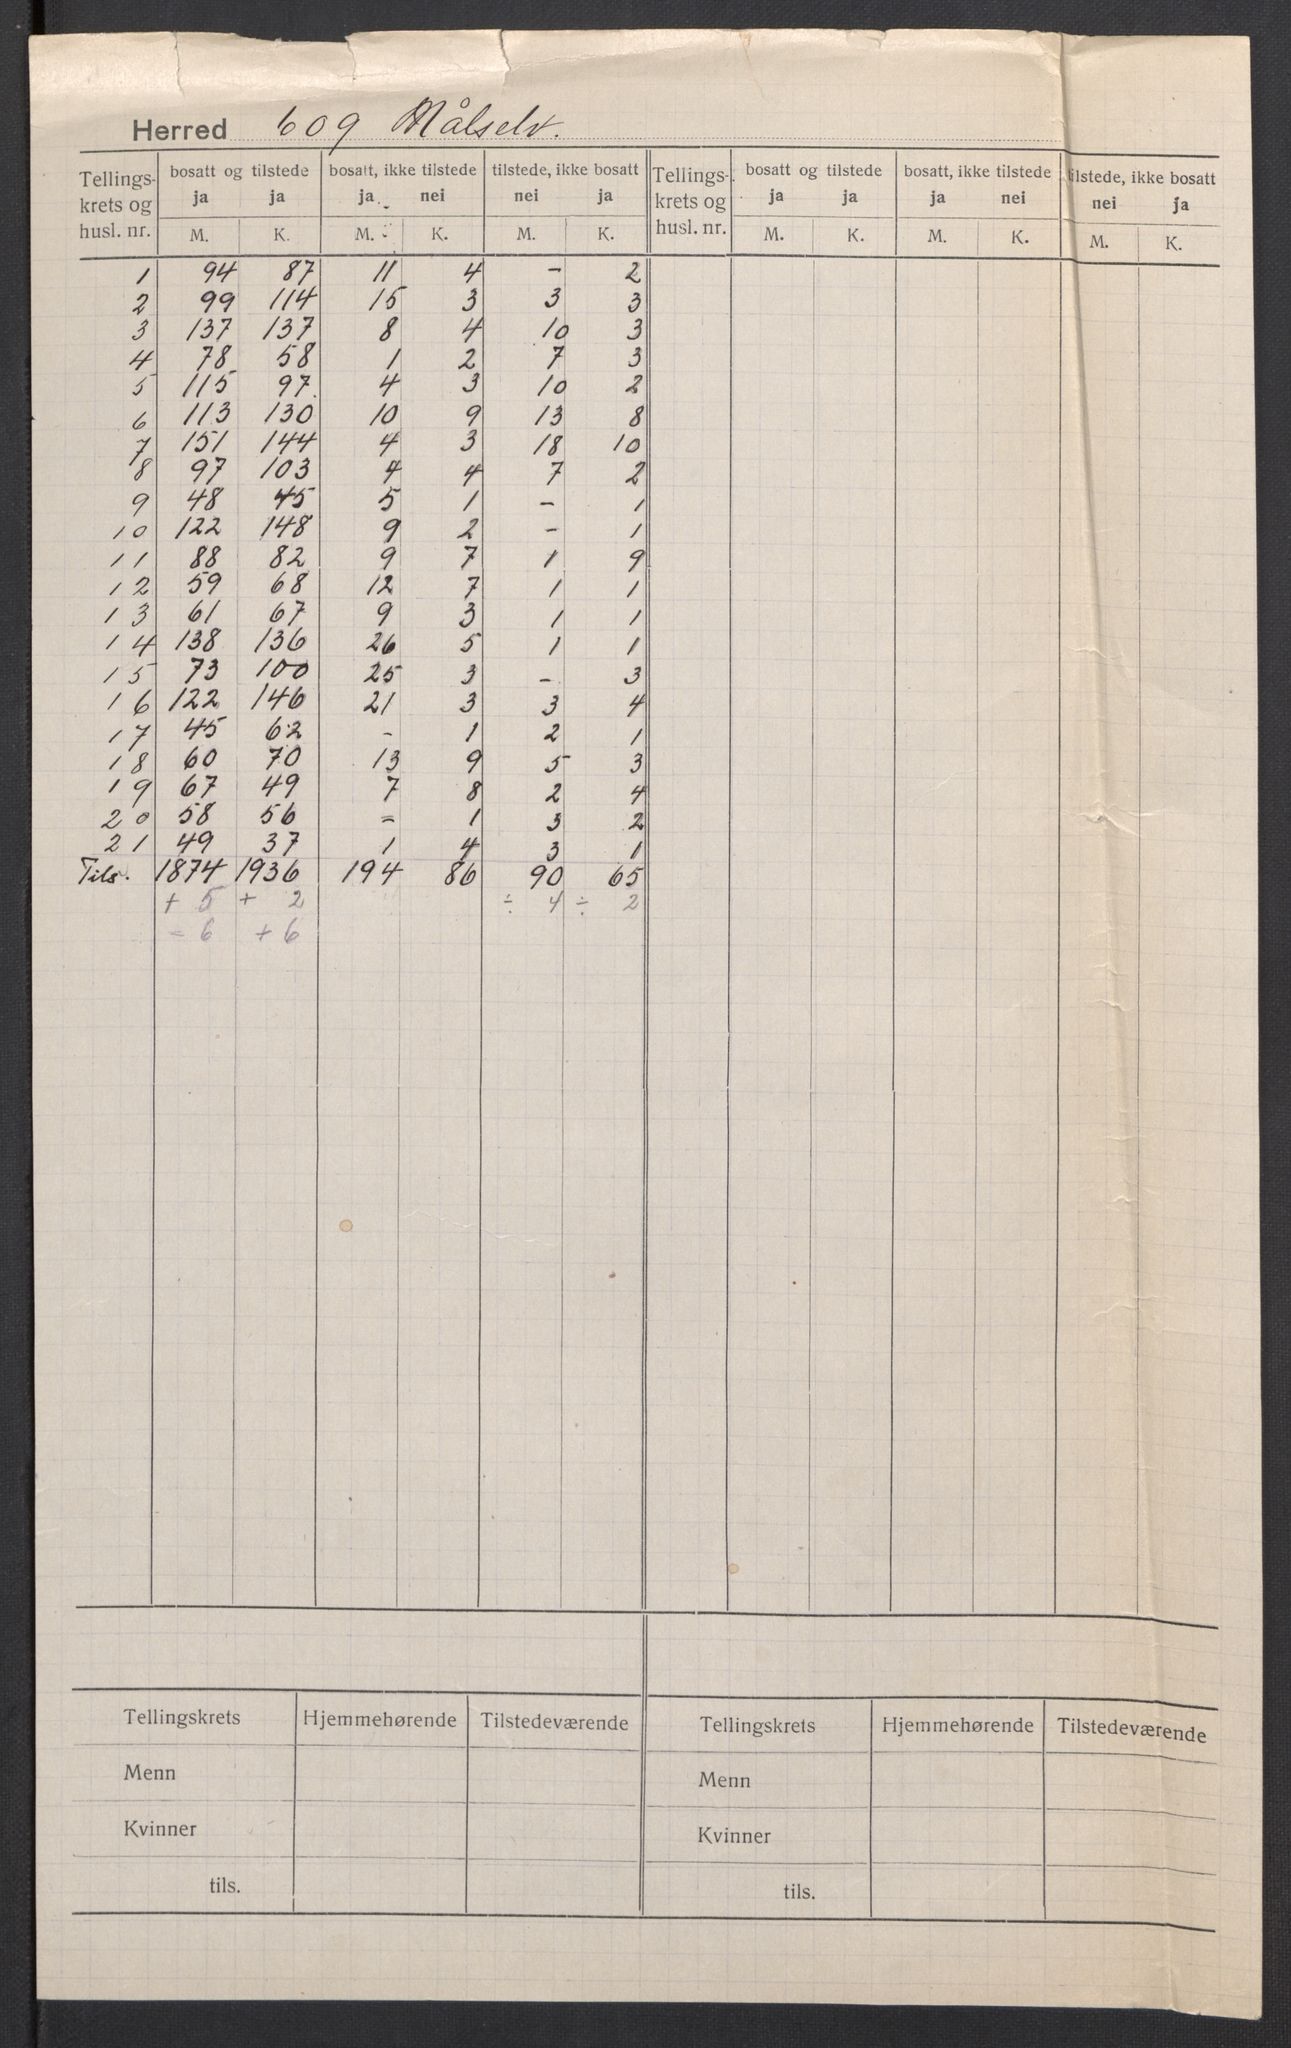 Herred 609 Målselv.
Tellings- bosatt og tilstede bosatt, ikke tilstede tilstede, ikke bosatt Tellings- bosatt og tilstede bosatt, ikke tilstede tilstede, ikke bosatt
krets og ja ja ja nei nei ja krets og ja ja ja nei nei ja
husl. nr. M. K. M. K. M. K. husl. nr. M. K. M. K. M. K.
1 94 87 11 4 – 2
2 99 114 15 3 3 3
3 137 137 8 4 10 3
4 78 58 1 2 7 3
5 115 97 4 3 10 2
6 113 130 10 9 13 8
7 151 144 4 3 18 10
8 97 103 4 4 7 2
9 48 45 5 1 – 1
10 122 148 9 2 – 1
11 88 82 9 7 1 9
12 59 68 12 7 1 1
13 61 67 9 3 1 1
14 138 136 26 5 1 1
15 73 100 25 3 – 3
16 122 146 21 3 3 4
17 45 62 – 1 2 1
18 60 70 13 9 5 3
19 67 49 7 8 2 4
20 58 56 = 1 3 2
21 49 37 1 4 3 1
Tils. 1874 1936 194 86 90 65
+ 5 + 2 ÷ 4 ÷ 2
= 6 + 6
Tellingskrets Hjemmehørende Tilstedeværende Tellingskrets Hjemmehørende Tilstedeværende
Menn Menn
Kvinner Kvinner
tils. tils.